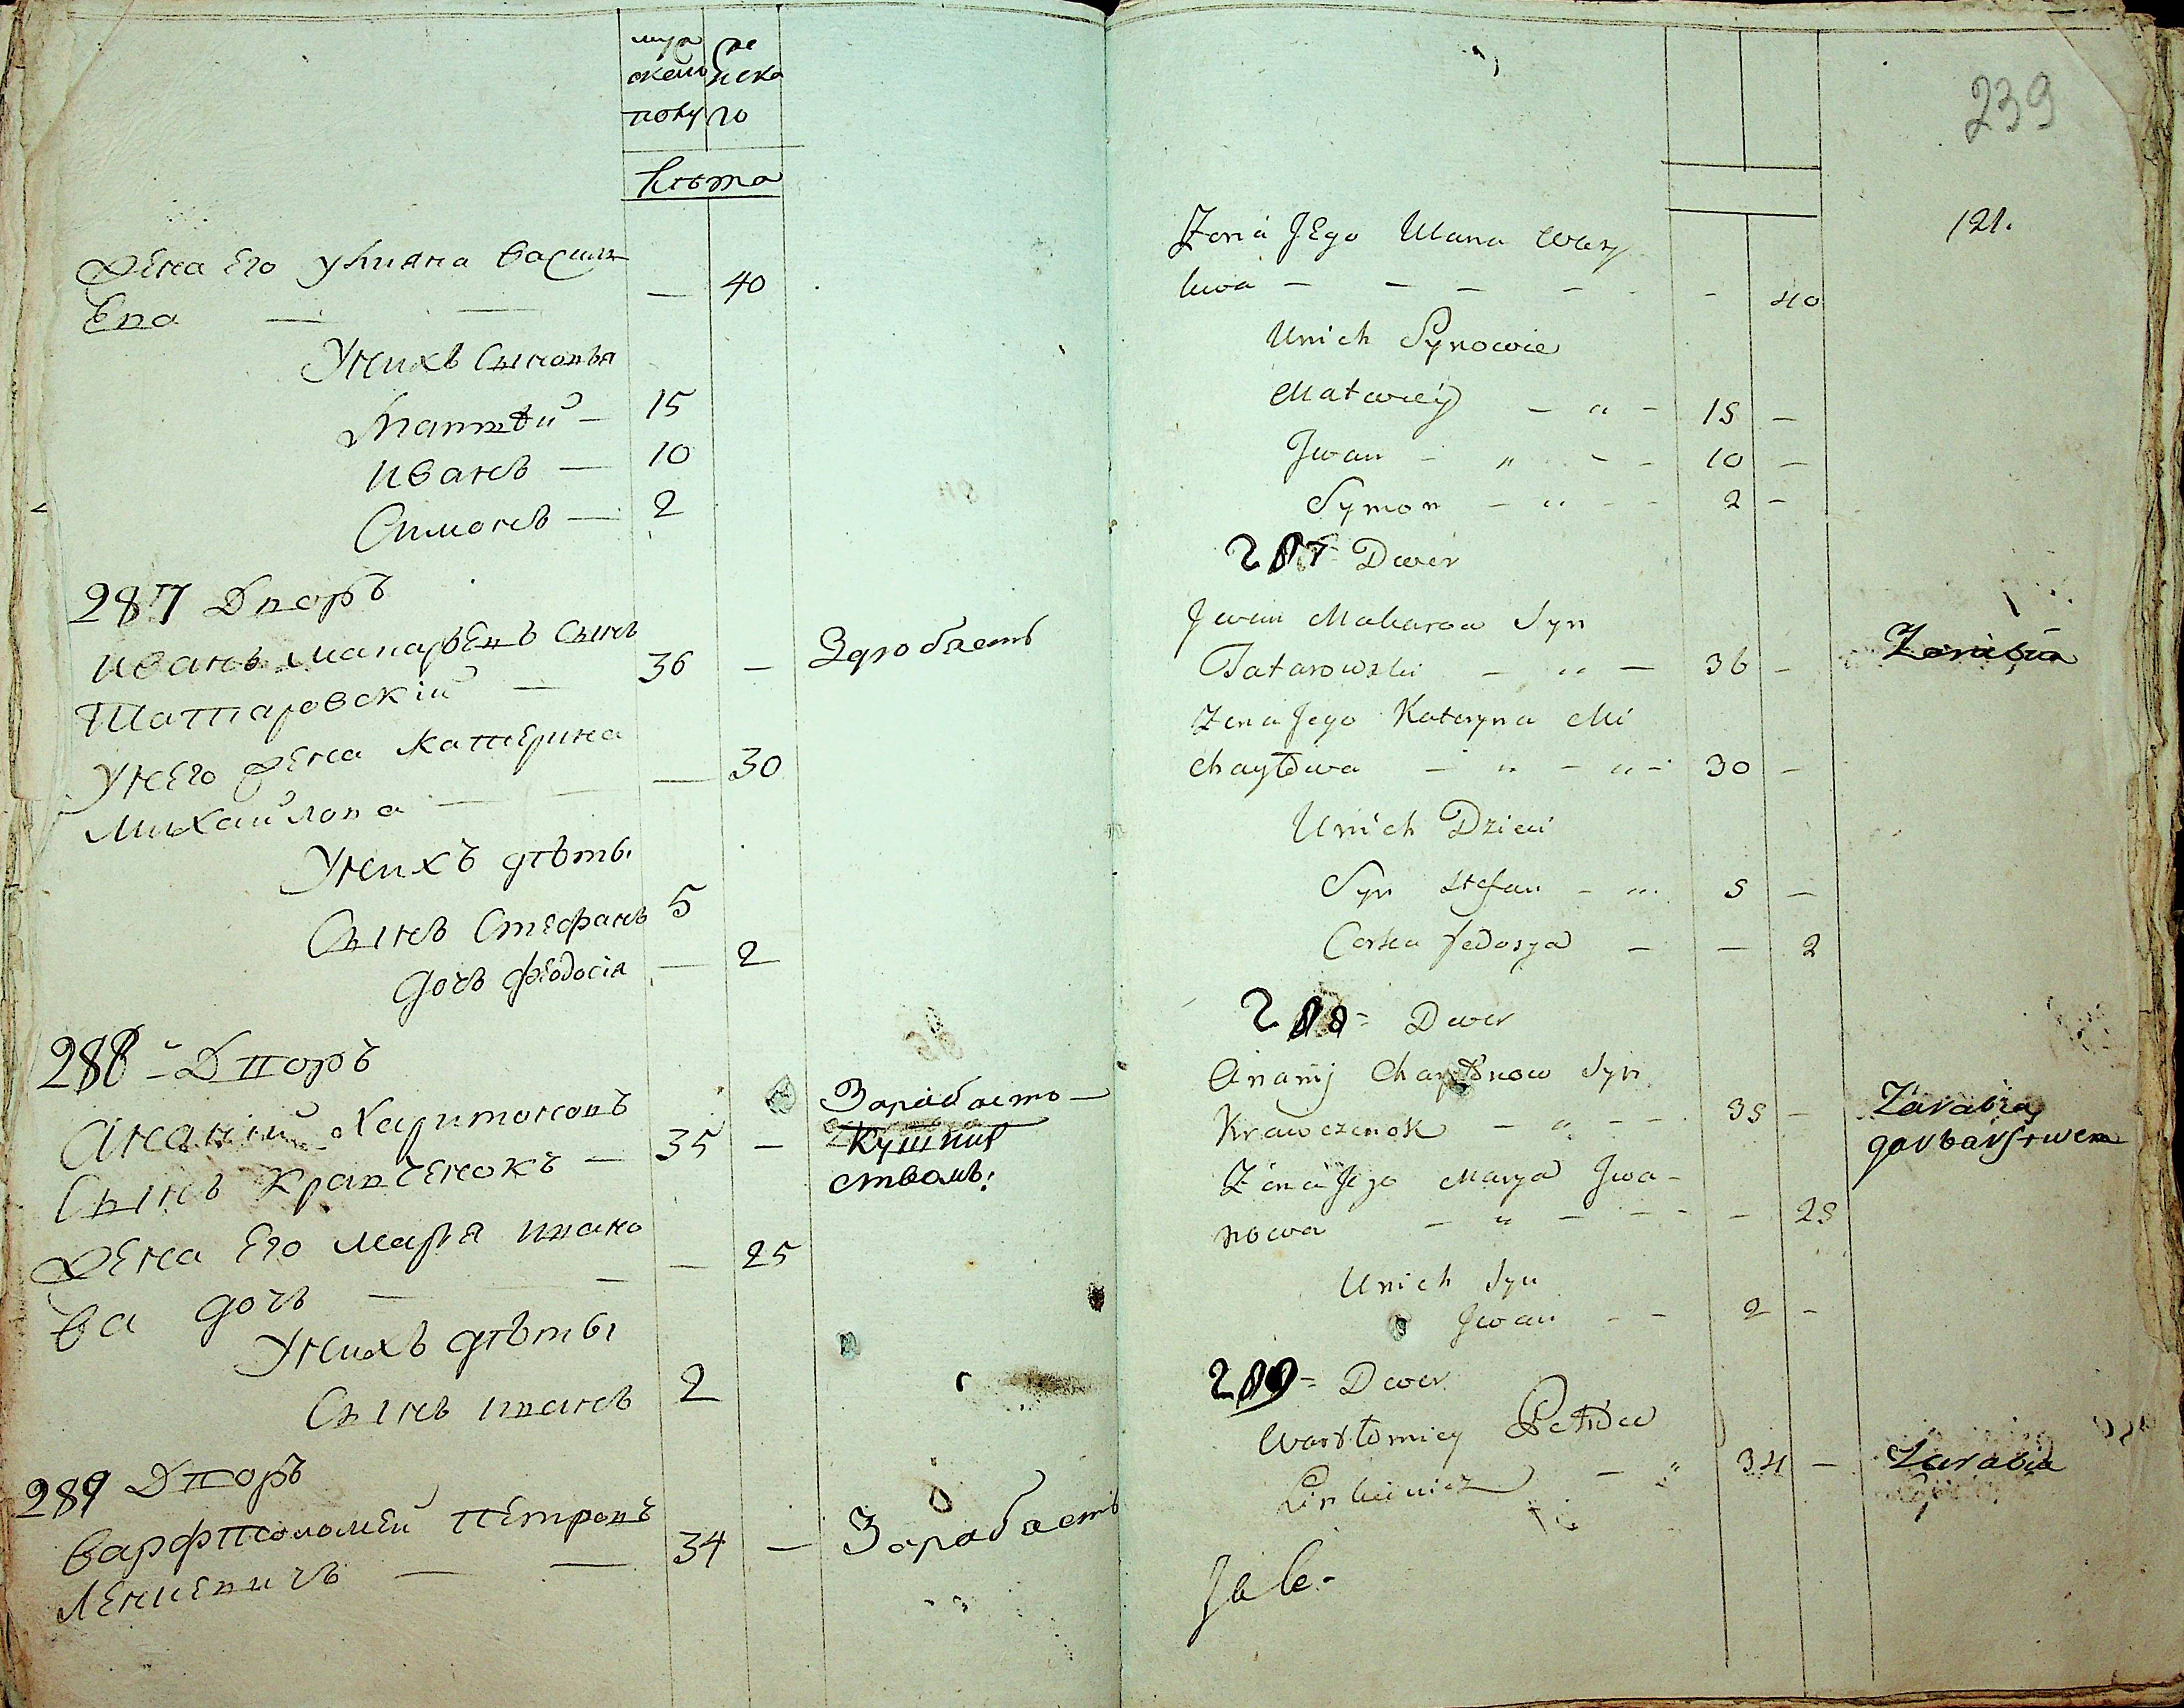 муж
ского
полу
же
нска
го
лѣта
Жена Его Ульяна Василь
Ева — — — 40
Унихъ Сыновья
Матвѣй — 15
Иванъ — 10
Симонъ — 2
287 Дворъ
Иванъ Макаровъ Сынъ
Татаровскій — 36 — Зароблаетъ
Унего жена Катерина
Михайлова — — — 30
Унихъ дѣты
Сынъ Стефанъ 5
дочь Феодосія — 2
288 - Дворъ
Ананій Харитоновъ
Сынъ Кравченокъ — 35 — Зарабlаето—
кушнир
ствомъ:
Жена Его Марья Ивано
ва дочь — — — 25
Унихъ дѣты
Сынъ Иванъ 2
289 Дворъ
Варфтоломей Петровъ
Ленкевичъ — — 34 — Заробlаетъ
239
121.
Zona JEgo Ulana Wasy
lewa — — — — — 40
Unich Synowie
Matwiey — " — 15 —
Jwan — " — — 10 —
Symon — " — — 2 —
287 - Dwor
Jwan Makarow Syn
Tatarowski — " — 36 — Zarabia
Zona Jego Kateryna Mi
chayłowa — " — " — 30 —
Unich Dzieci
Syn Stefan — " 5 —
Corka fedosya — — 2
288 - Dwor
Ananij Charytonow Syn
Krawczenok — " — — 35 — Zarabia
garbarstwem
Zona Jego Marya Jwa-
nowa — " — — — — 25
Unich Syn
Jwan — — 2 —
289 - Dwor
Wartłomiey Petrow
Linkiewicz — " 34 — Zarabia